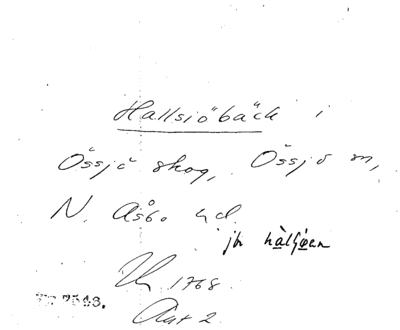 Hallsiöbäck i
Össjö skog, Össjö sn,
N. Åsbo hd.
jfr hàlʃøen
1768
Akt 2